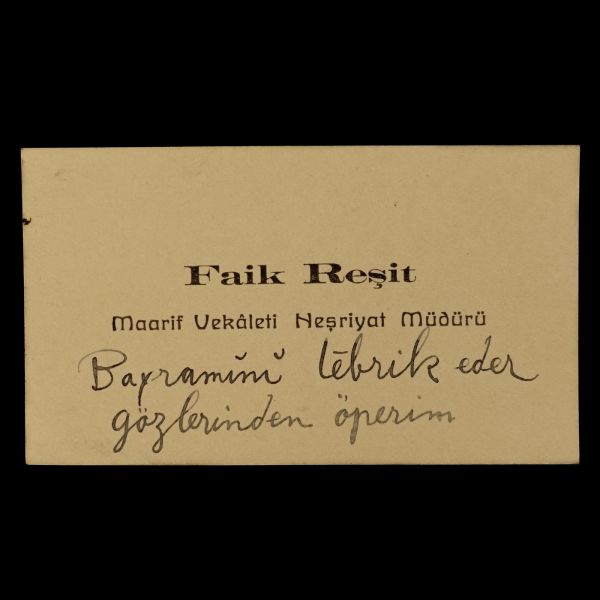 Faik Reşit
Maarif Vekâleti Neşriyat Müdürü
Bayramĭnĭ tēbrik eder
gözlerinden öperim